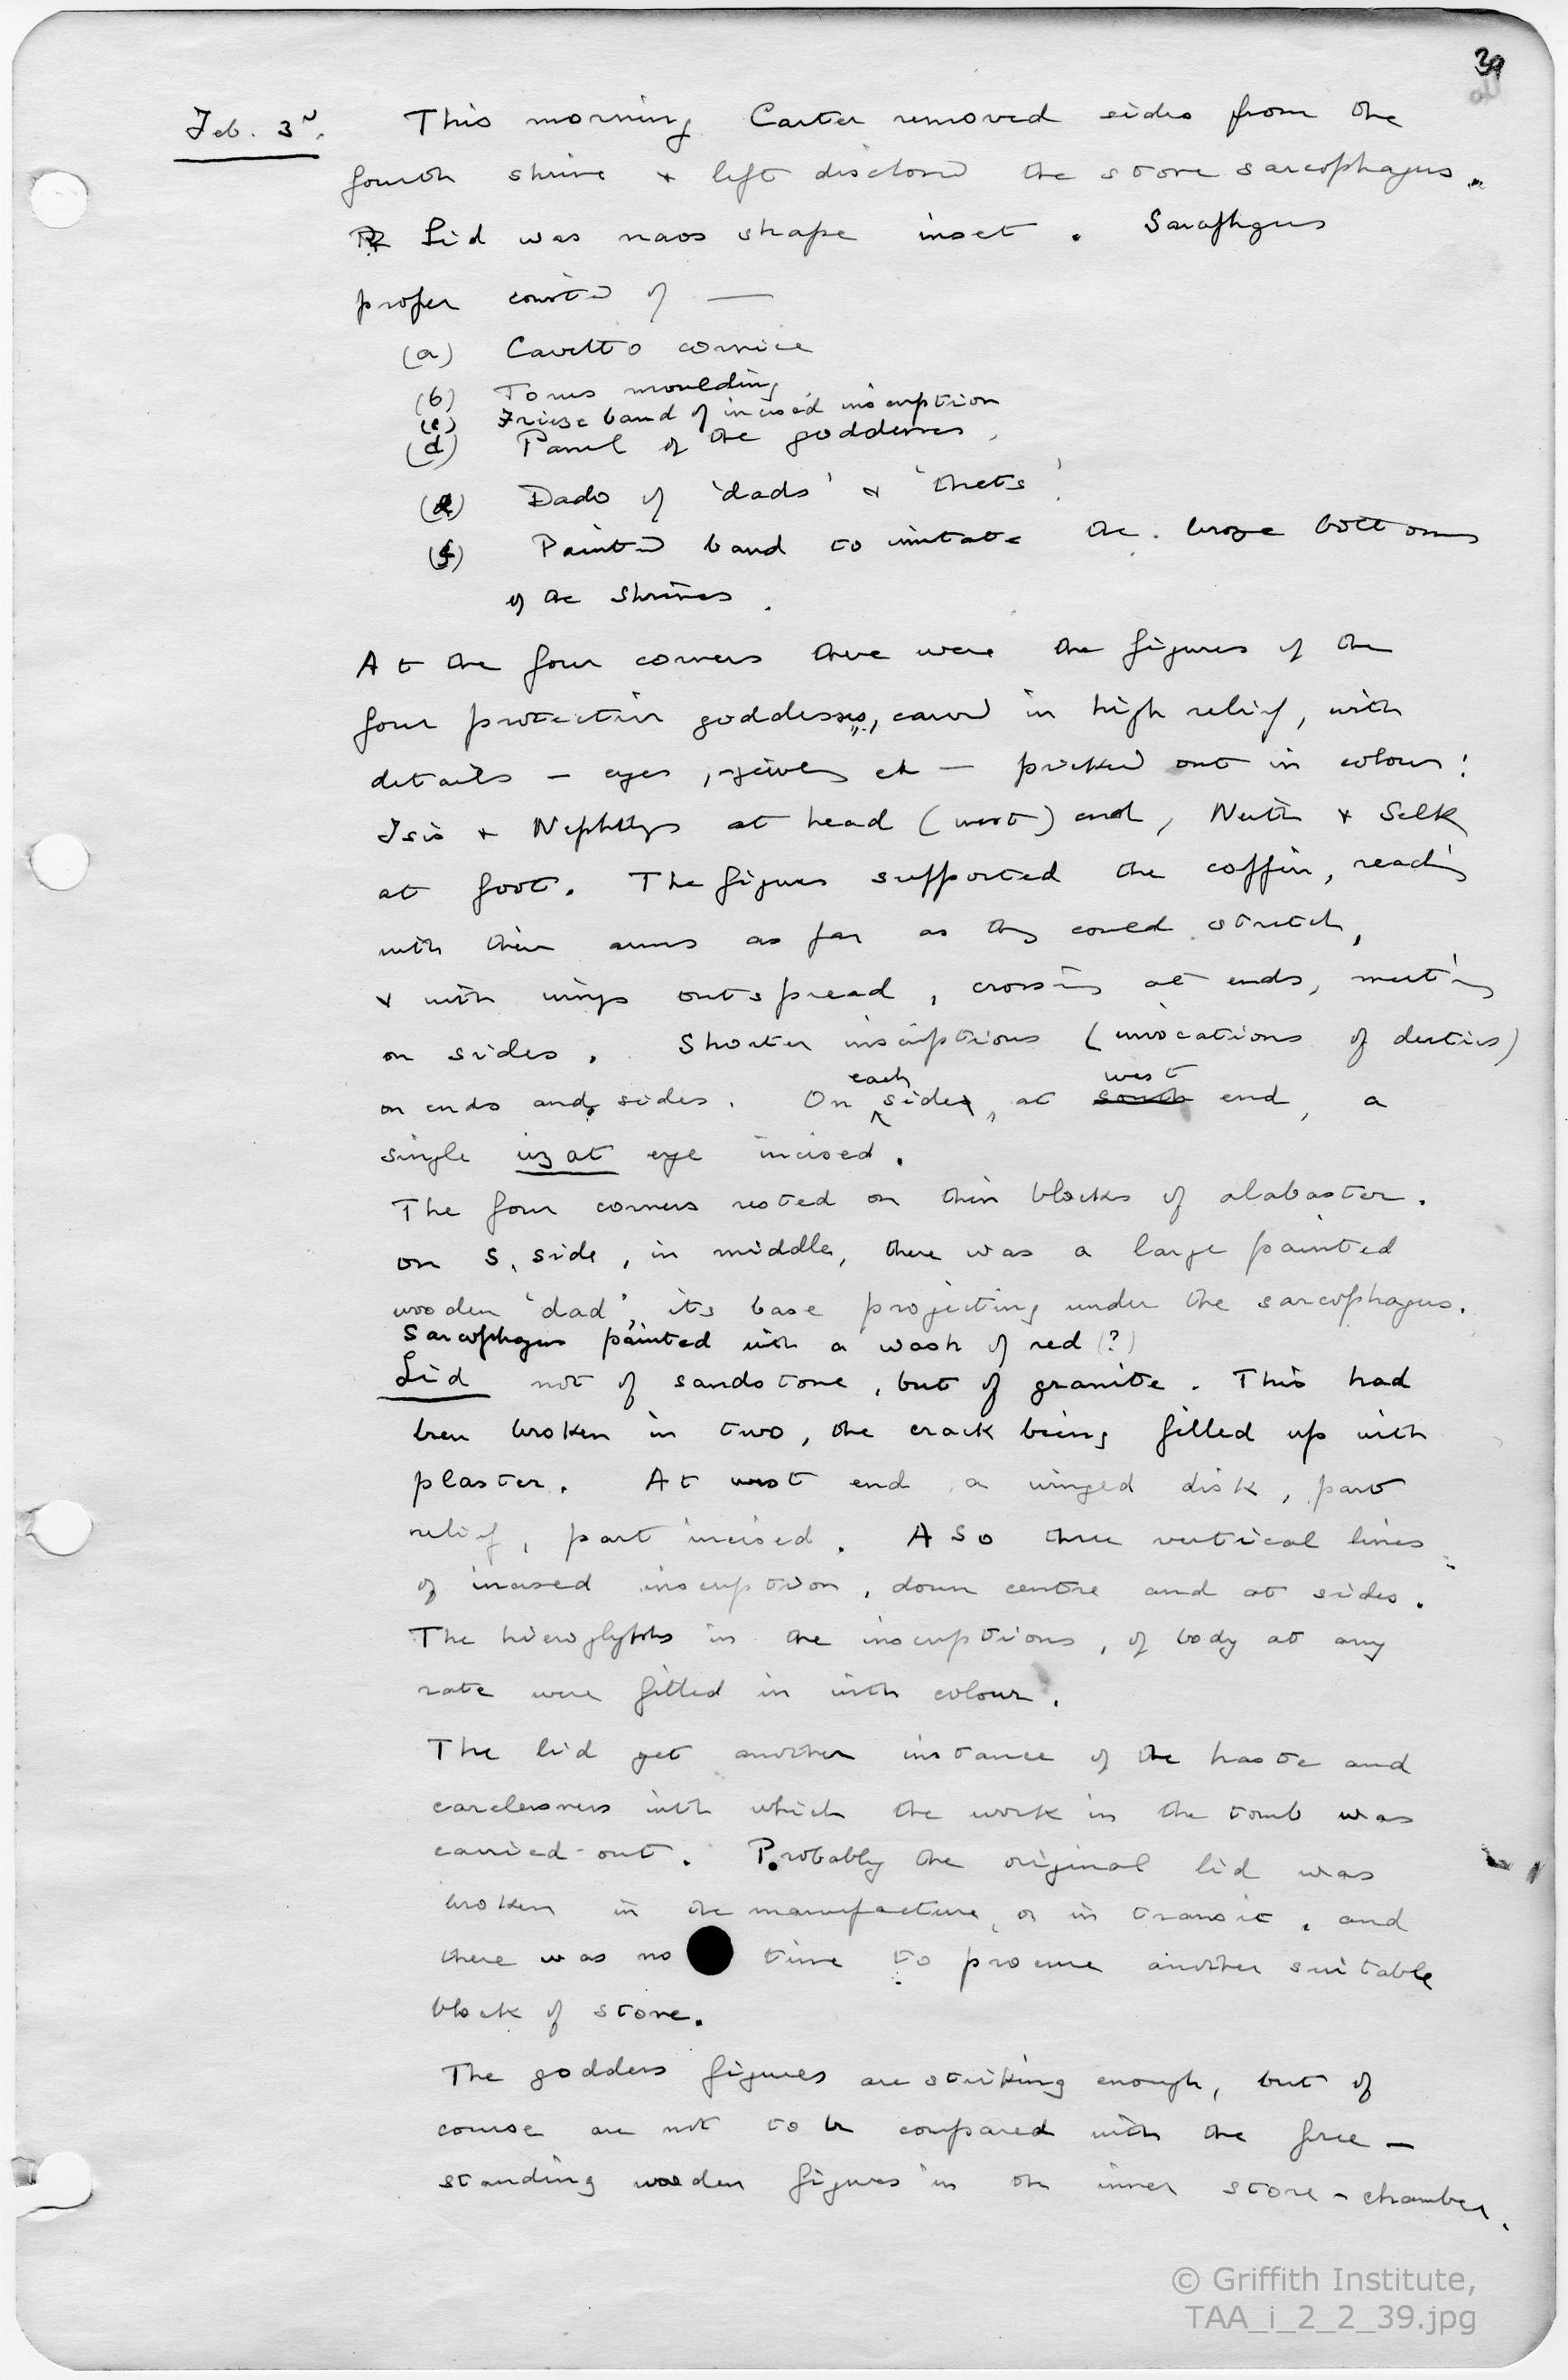 39
Feb. 3d. This morning Carter removed sides from the
fourth shrine & left disclosed the stone sarcophagus.
Lid was naos shape inset. Sarcophagus
proper consisted of —
(a) Cavetto cornice
(b) Torus moulding
(c) Frieze band of incised inscription
(d) Panel of the goddesses,
(e) Dado of 'dads' & 'thets'.
(f) Painted band to imitate the bronze bottoms
of the shrines.
At the four corners there were the figures of the
four protective goddesses, carved in high relief, with
details – eyes, jewels etc – pricked out in colour:
Isis & Nephthys at head (west) end, Neith & Selk
at foot. The figures supported the coffin, reaching
with their arms as far as they could stretch,
& with wings outspread, crossing at ends, meeting
on sides. Shorter inscriptions (invocations of deities)
on ends and sides. On each side, at south west end, a
single uzat eye incised.
The four corners rested on thin blocks of alabaster.
on S. side, in middle, there was a large painted
wooden 'dad', its base projecting under the sarcophagus.
Sarcophagus painted with a wash of red (?)
Lid not of sandstone, but of granite. This had
been broken in two, the crack being filled up with
plaster. At west end a winged disk, part
relief, part incised. Also three vertical lines
of incised inscription, down centre and at sides.
The hieroglyphs in the inscriptions, of body at any
rate were filled in with colour.
The lid yet another instance of the haste and
carelessness with which the work in the tomb was
carried out. Probably the original lid was
broken in the manufacture, or in transit, and
there was no time to procure another suitable
block of stone.
The goddess figures are striking enough, but of
course are not to be compared with the free-
standing wooden figures in the inner store-chamber.
© Griffith Institute,
TAA_i_2_2_39.jpg